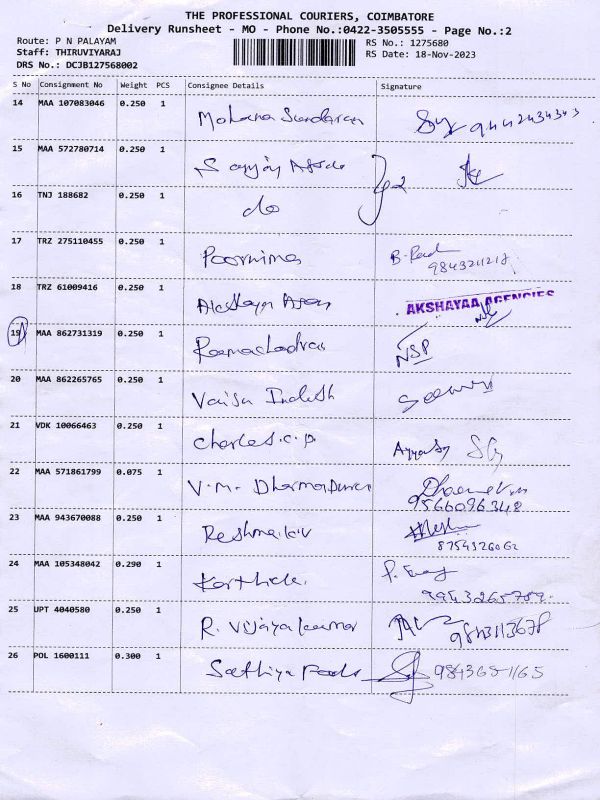 THE PROFESSIONAL COURIERS, COIMBATORE
Delivery Runsheet - MO - Phone No.:0422-3505555 - Page No.:2
Route: P N PALAYAM
RS No.: 1275680
Staff: THIRUVIYARAJ
RS Date: 18-Nov-2023
DRS No.: DCJB127568002
S No Consignment No Weight PCS Consignee Details Signature
14 MAA 107083046 0.250 1 Mohana Sundaram 9442434343
15 MAA 572780714 0.250 1 Sanjay
16 TNJ 188682 0.250 1 do
17 TRZ 275110455 0.250 1 Poornima B.
18 TRZ 61009416 0.250 1 Akshaya AKSHAYAA AGENCIES
19 MAA 862731319 0.250 1 Ramachadran NSP
20 MAA 862265765 0.250 1
21 VDK 10066463 0.250 1 Charles.c.p.
22 MAA 571861799 0.075 1 V.M. 9566096348
23 MAA 943670088 0.250 1 Reshma.k.v
24 MAA 105348042 0.290 1 Karthick. P.
25 UPT 4040580 0.250 1 R. Vijayakumar 9843113678
26 POL 1600111 0.300 1 Sathiya 9843651165